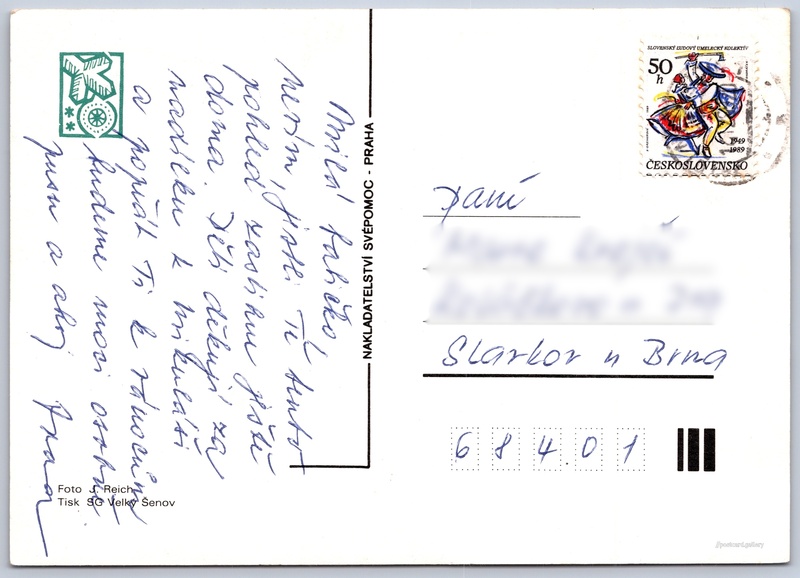 Milá babičko!
Nevím, jestli Tě tento
pohled zastihne ještě
doma. Děti děkují za
nadílku k Mikuláši
a popřát Ti k vánocům
budeme moci osobně
pusu a ahoj
NAKLADATELSTVÍ SVÉPOMOC - PRAHA
Foto J. Reich
Tisk SG Velký Šenov
SLOVENSKÝ ĽUDOVÝ UMELECKÝ KOLEKTÍV
50 h
1949
1989
ČESKOSLOVENSKO
Paní
Slavkov u Brna
68401